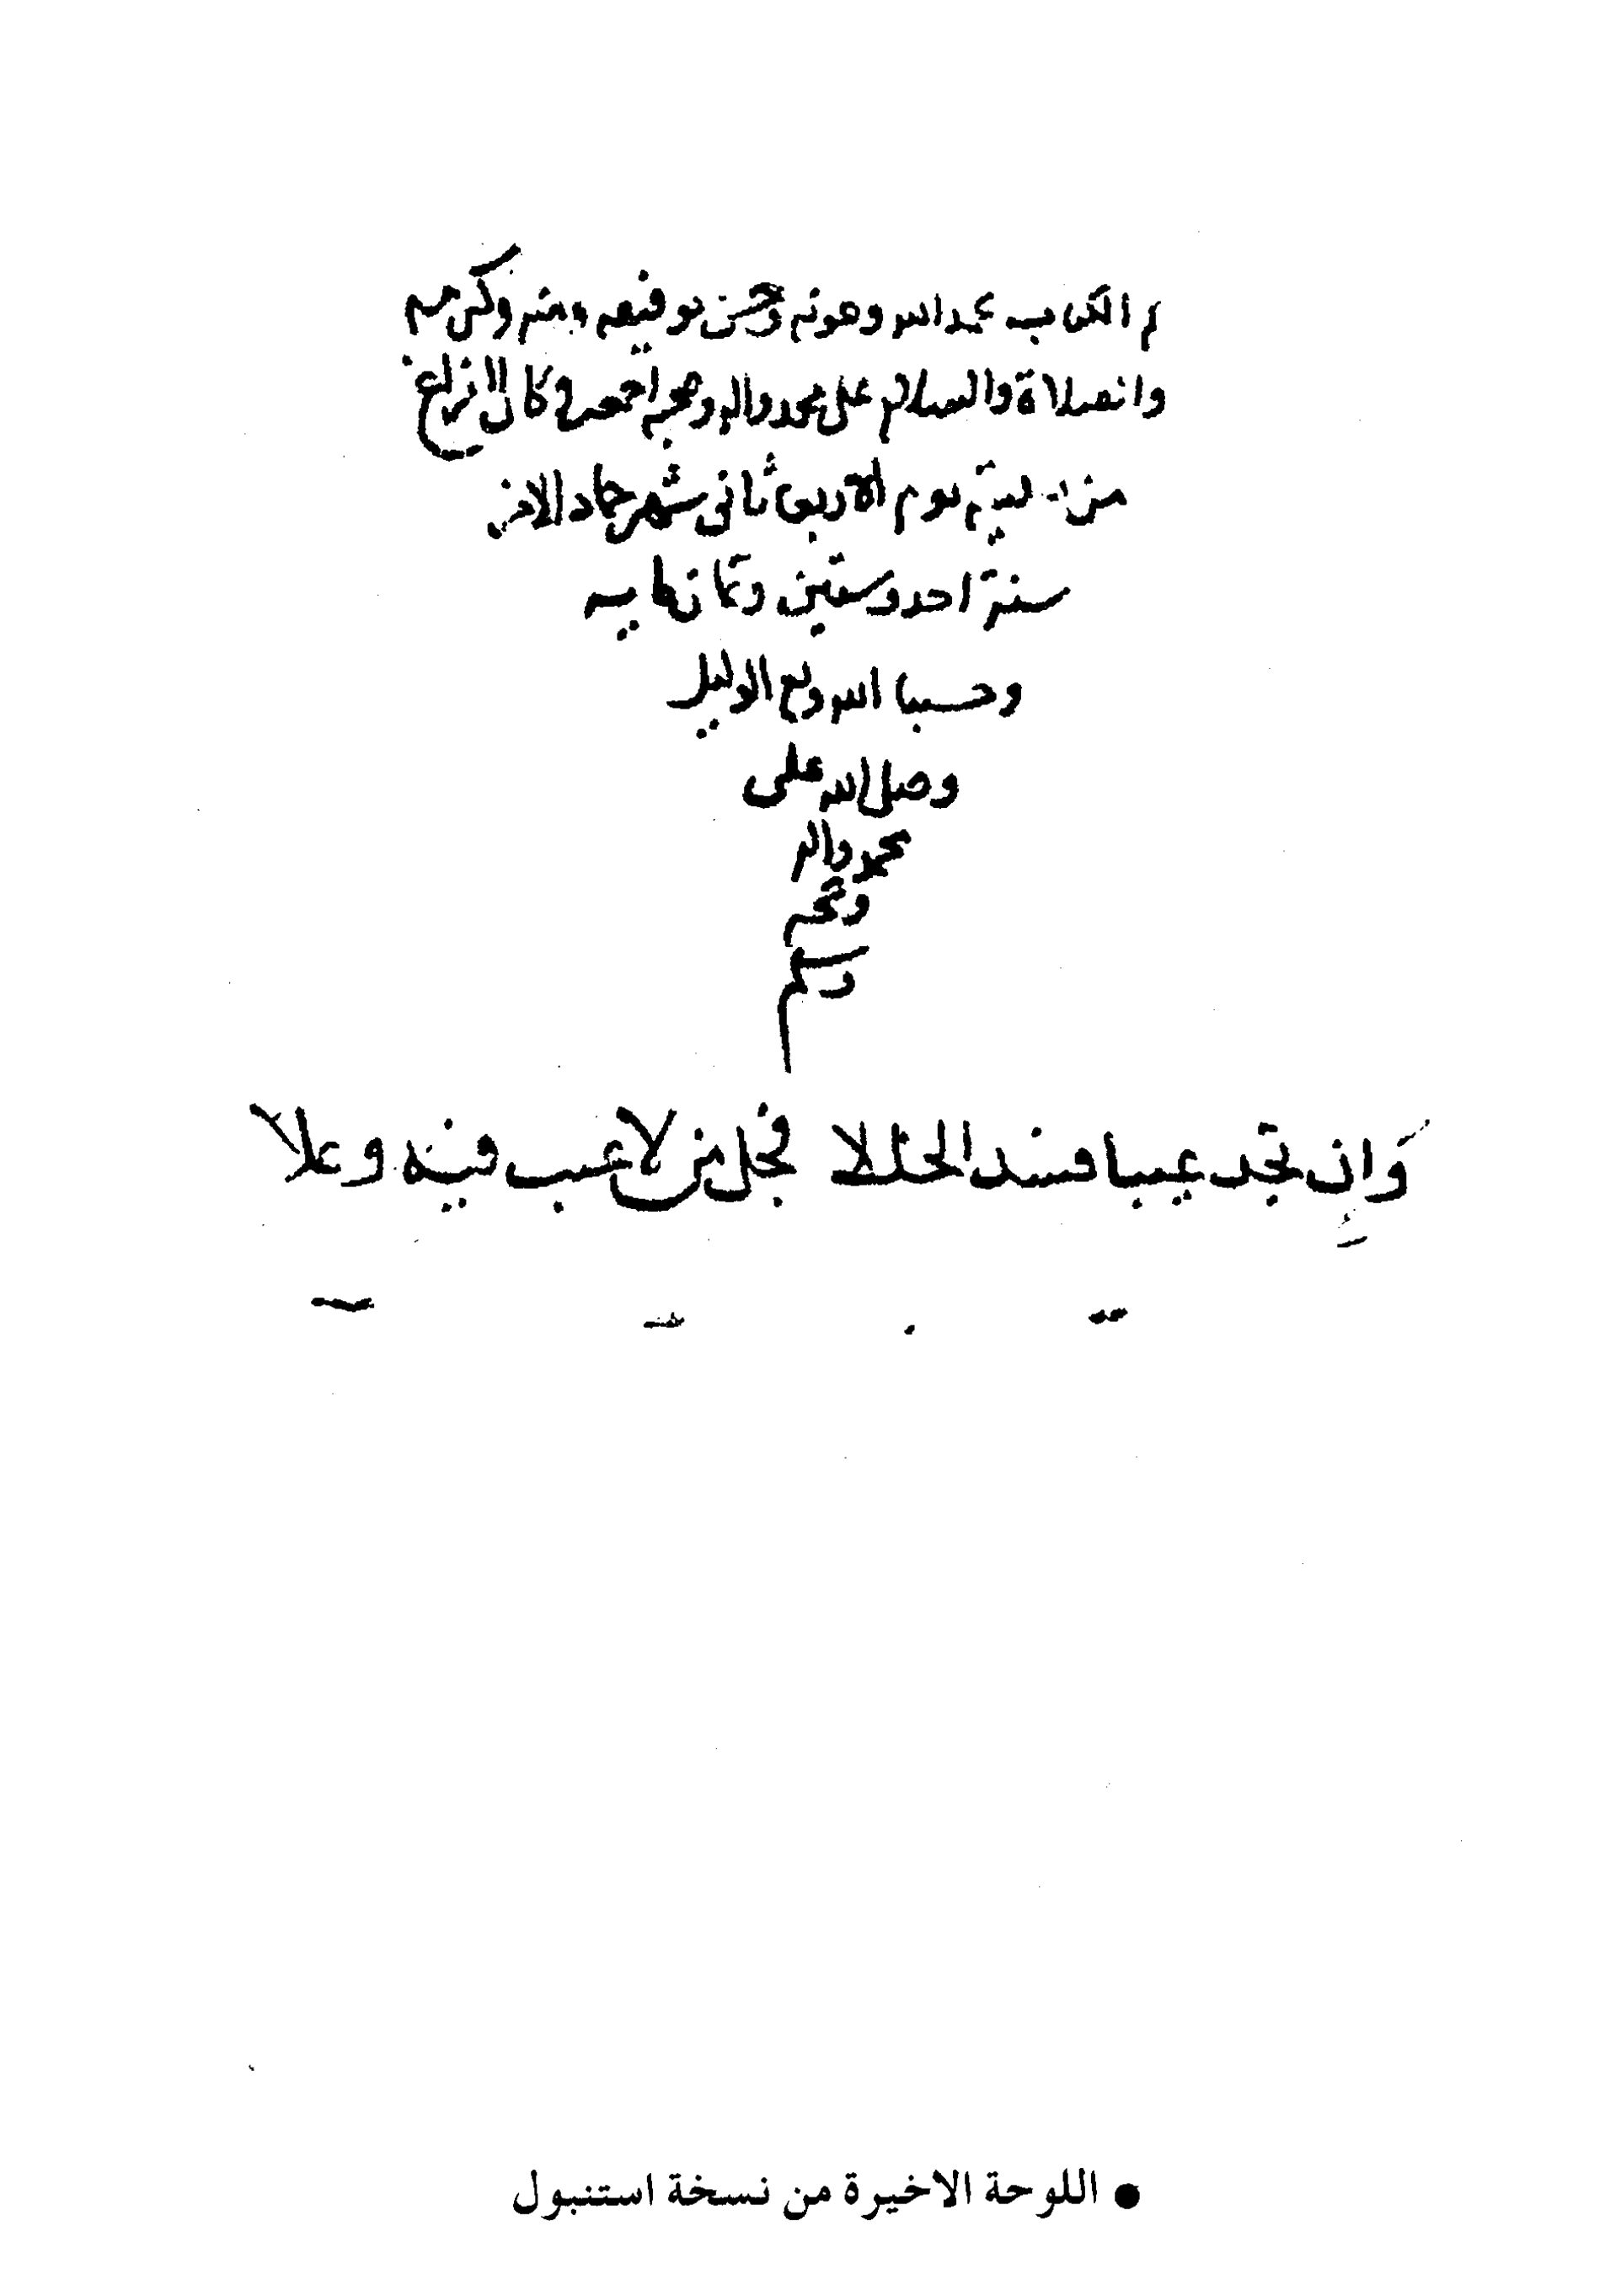 تم الكتاب بحمد الله وعونه وحسن توفيقه ومنه وكرمه
والصلاة والسلام على محمد واله وصحبه اجمعين وكان الفراغ
من يوم الاربعا ثانى شهر جماد الاخر
سنة احد وستين وثمانمايه
وحسبنا الله ونعم الوكيل
وصلى الله على
محمد واله
وصحبه
وسلم
وَإن تجد عيبا فسد الخللا فجل من لا عيب فيه وعلا
● اللوحة الاخيرة من نسخة استنبول